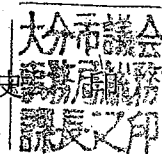 大分市議会
事務局總務
課長之印